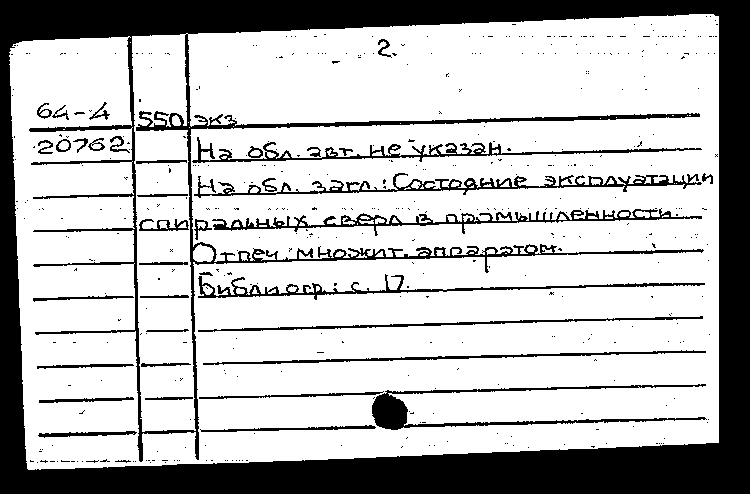 2.
64-4 550 экз.
20762 На обл. авт. не указан.
На обл. загл.: Состояние эксплуатации
спиральных сверл в промышленности.
Отпеч. множит. аппаратом.
Библиогр.: с. 17.